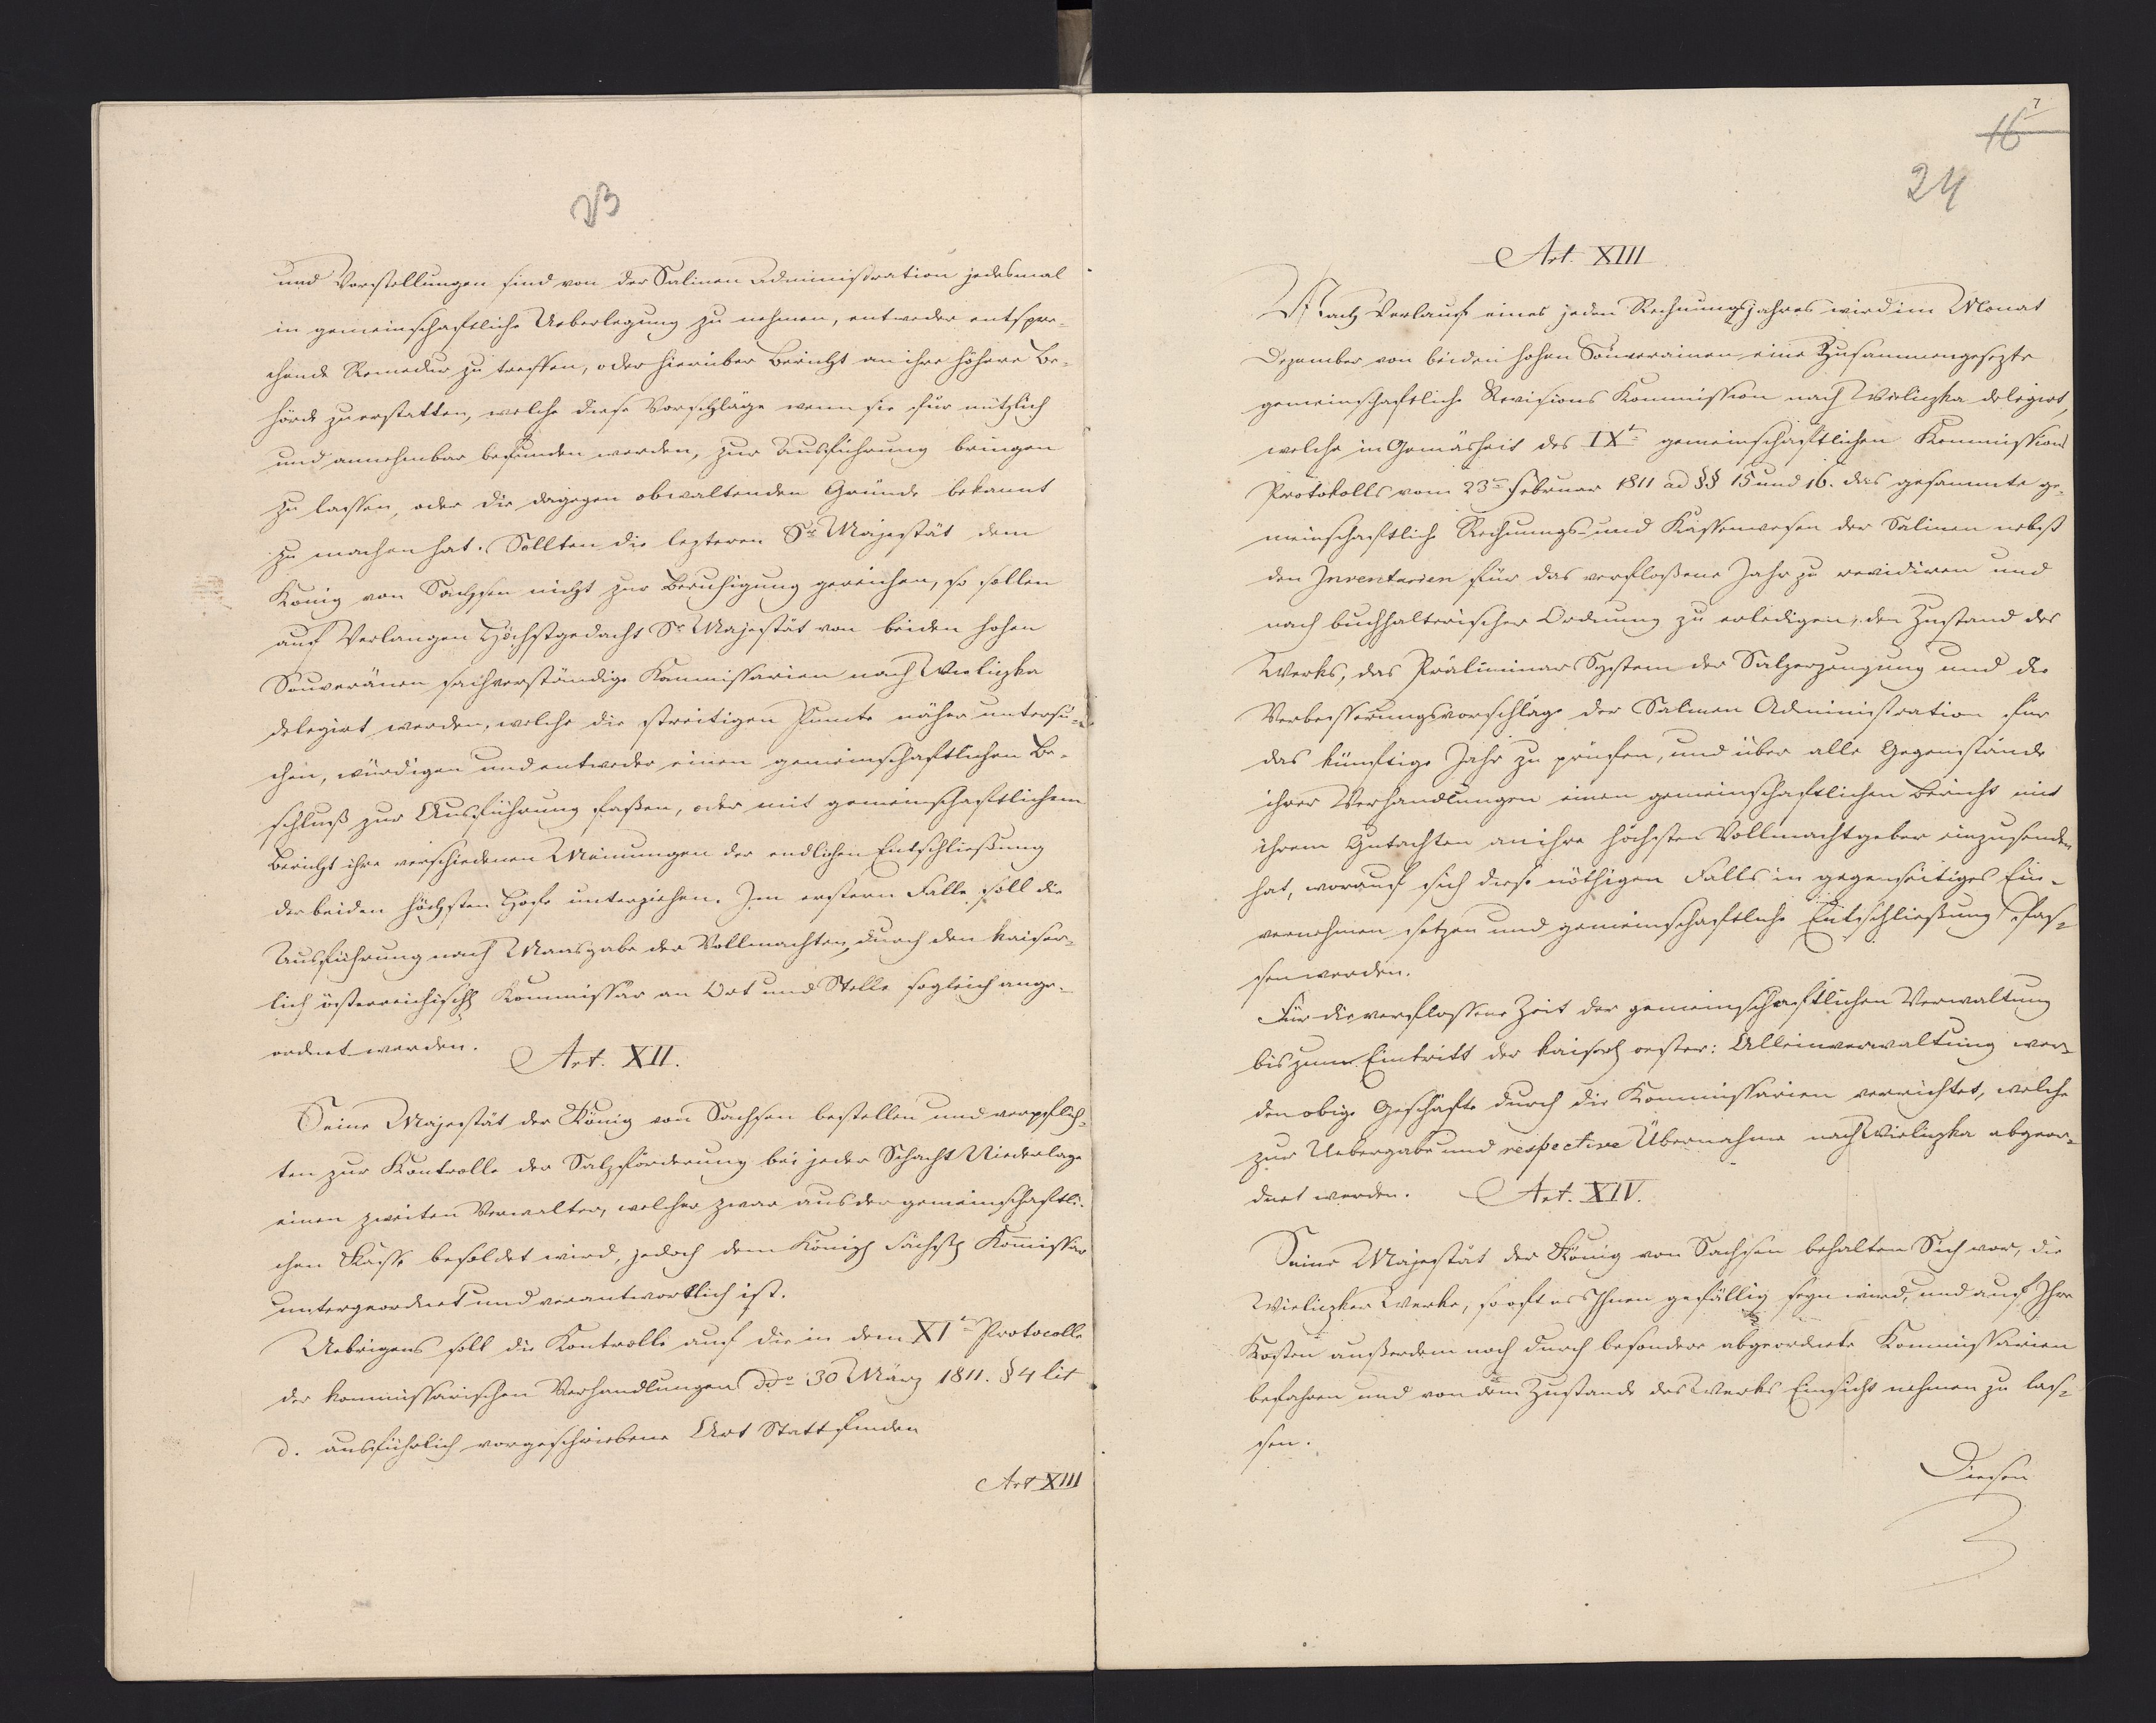 23
und Vorstellungen sind von der Salinen Administration jedesmal
in gemeinschaftliche Ueberlegung zu nehmen, entweder entspre-
chende Remedur zu treffen, oder hierüber Bericht an ihre höhere Be-
hörde zu erstatten, welche diese Vorschläge wenn sie für nützlich
und annehmbar befunden werden, zur Ausführung bringen
zu lassen, oder die dagegen obwaltenden Gründe bekannt
zu machen hat. Sollten die lezteren Sr. Majestät dem
König von Sachsen nicht zur Beruhigung gereichen, so sollen
auf Verlangen Höchstgedacht Sr Majestät von beiden hohen
Souveränen sachverständige Kommissarien nach Wieliczka
delegirt werden, welche die streitigen Punkte näher untersu-
chen, würdigen und entweder einen gemeinschaftlichen Be-
schluß zur Ausführung faßen, oder mit gemeinschaftlichem
Bericht ihre verschiedenen Meinungen der endlichen Entschließung
der beiden höchsten Höfe unterziehen. Im erstern Falle soll die
Ausführung nach Maasgabe der Vollmachten durch den kaiser-
lich österreichisch Kommissär an Ort und Stelle sogleich ange-
ordnet werden.
Art. XII.
Seine Majestät der König von Sachsen bestellen und verpflich-
ten zur Kontrolle der Salzförderung bei jeder Schacht Niederlage
einen zweiten Verwalter, welcher zwar aus der gemeinschaftli-
chen Kasse besoldet wird, jedoch dem Königl Sächsl Komissar
untergeordnet und verantwortlich ist.
Uebrigens soll die Kontrolle auf die in dem XIten Protocolle
der kommissarischen Verhandlungen ddo 30 März 1811. § 4 lit
d. ausführlich vorgeschriebene Art Statt finden
Art XIII
7
16
24
Art. XIII
Nach Verlauf eines jeden Rechnungsjahres wird im Monat
Dezember von beiden hohen Souverainen eine Zusammengesezte
gemeinschaftliche Revisions Kommission nach Wieliczka delegirt,
welche in Gemäsheit des IXten gemeinschaftlichen Kommissions
Protokolls vom 23ten Februar 1811 ad §§ 15 und 16. das gesammte ge-
meinschaftliche Rechnungs- und Kassenwesen der Salinen nebst
den Inventarien für das verfloßene Jahr zu revidiren und
nach buchhalterischer Ordnung zu erledigen, den Zustand des
Werks, das Präliminar System der Salzerzeugung und die
Verbesserungsvorschläge der Salinen Administration für
das künftige Jahr zu prüfen, und über alle Gegenstände
ihrer Verhandlungen einen gemeinschaftlichen Bericht mit
ihrem Gutachten an ihre höchsten Vollmachtgeber einzusenden
hat, worauf sich diese nöthigen Falls in gegenseitiges Ein-
vernehmen setzen und gemeinschaftliche Entschließung fas-
sen werden.
Für die verflossene Zeit der gemeinschaftlichen Verwaltung
bis zum Eintritt der kaiserl oester: Alleinverwaltung wer-
den obige Geschäfte durch die Kommissarien verrichtet, welche
zur Uebergabe und respective Übernahme nach Wieliczka abgeor-
dnet werden.
Art. XIV.
Seine Majestät der König von Sachsen behalten Sich vor, die
Wieliczker Werke, so oft es Ihnen gefällig seyn wird, und auf Ihre
Kosten außerdem noch durch besonders abgeordnete Kommissarien
befahren und von dem Zustande des Werks Einsicht nehmen zu las-
sen.
Diesen